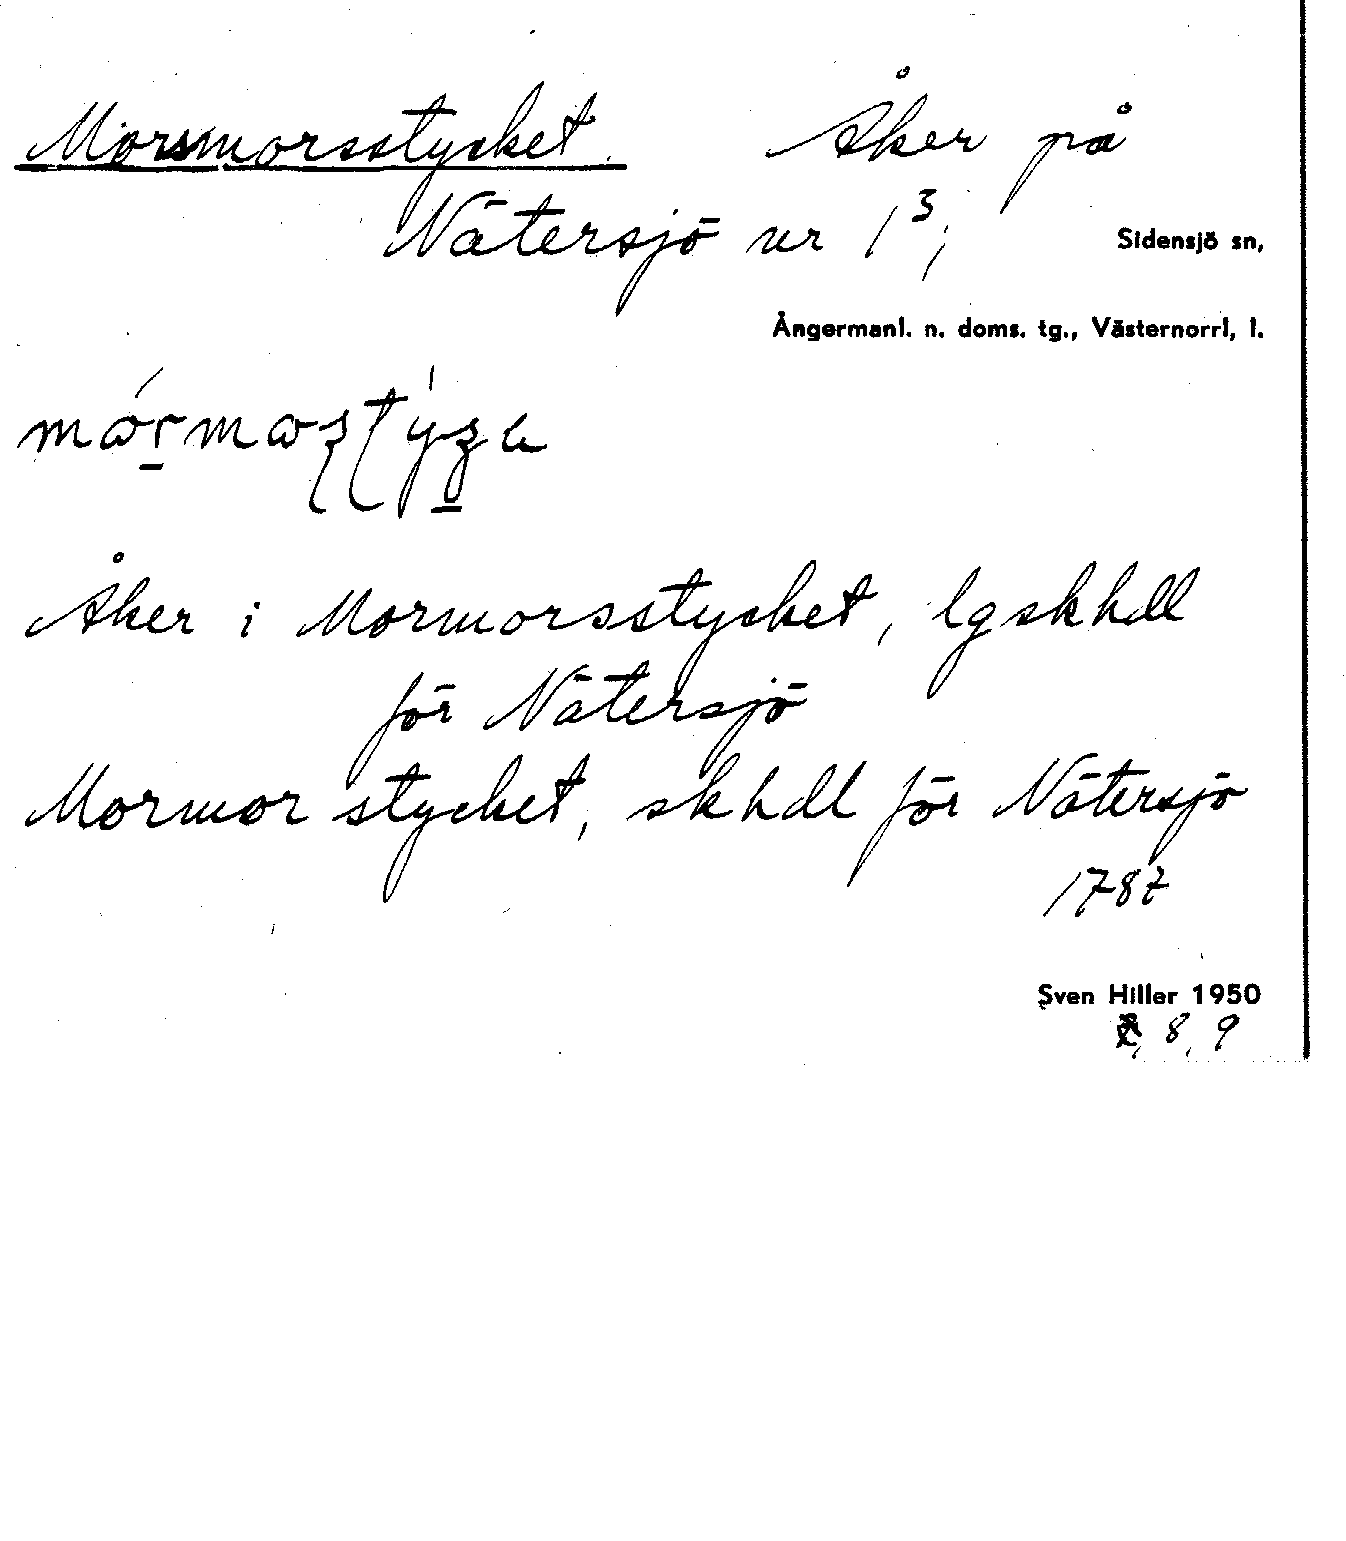 Mormorsstycket. Åker på
Nätersjö nr 1³;
Sidensjö sn,
Ångermanl. n. doms. tg., Västernorrl, l.
Åker i Mormorsstycket, lgskhdl
för Nätersjö
Mormor stycket, skhdl för Nätersjö
1787
Sven Hiller 1950
8, 9